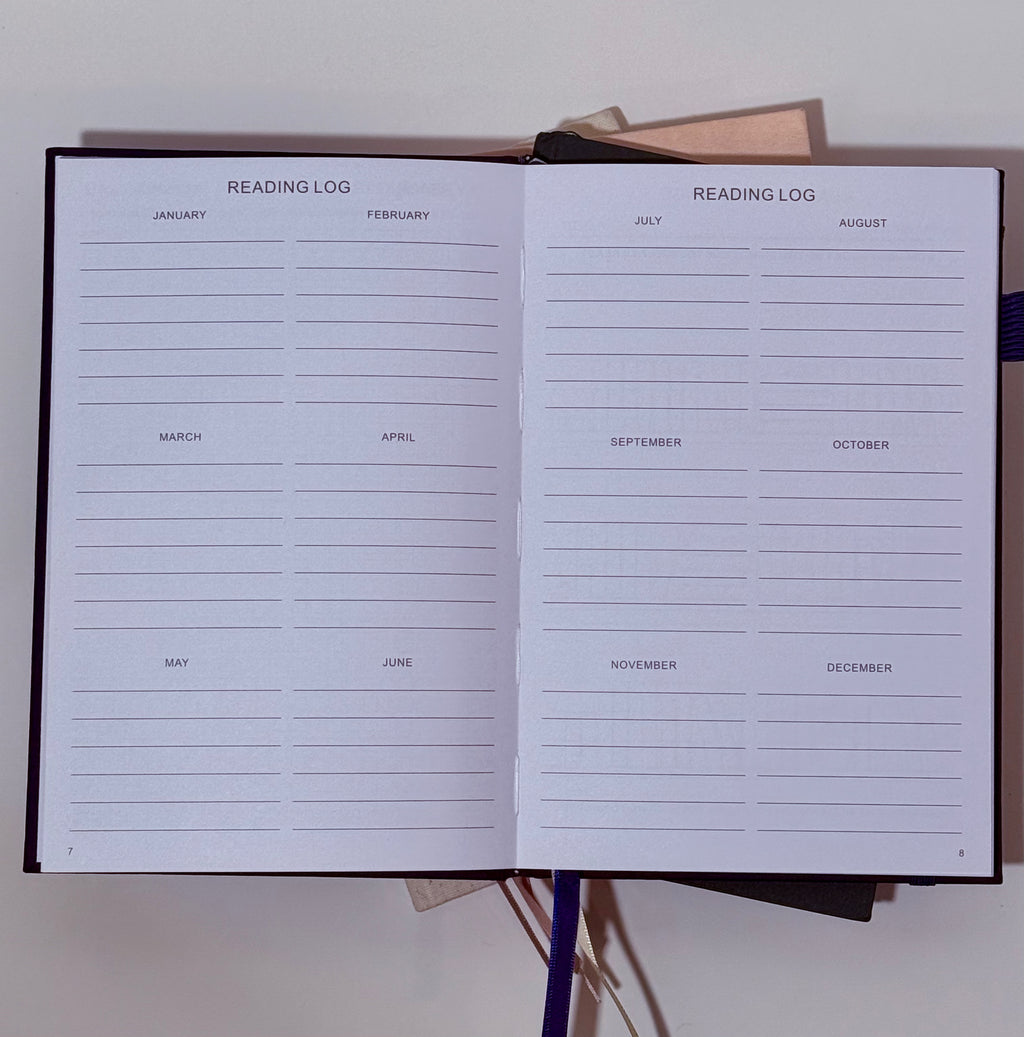 READING LOG
JANUARY FEBRUARY
MARCH APRIL
MAY JUNE
7
READING LOG
JULY AUGUST
SEPTEMBER OCTOBER
NOVEMBER DECEMBER
8